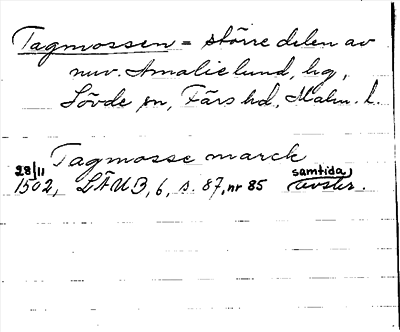 Tagmossen = större delen av
nuv. Amalielund, hg,
Sövde sn, Färs hd, Malm. l.
Tagmosse marck
28/11 samtida
1502, LÄUB, 6, s. 87, nr 85 avskr.